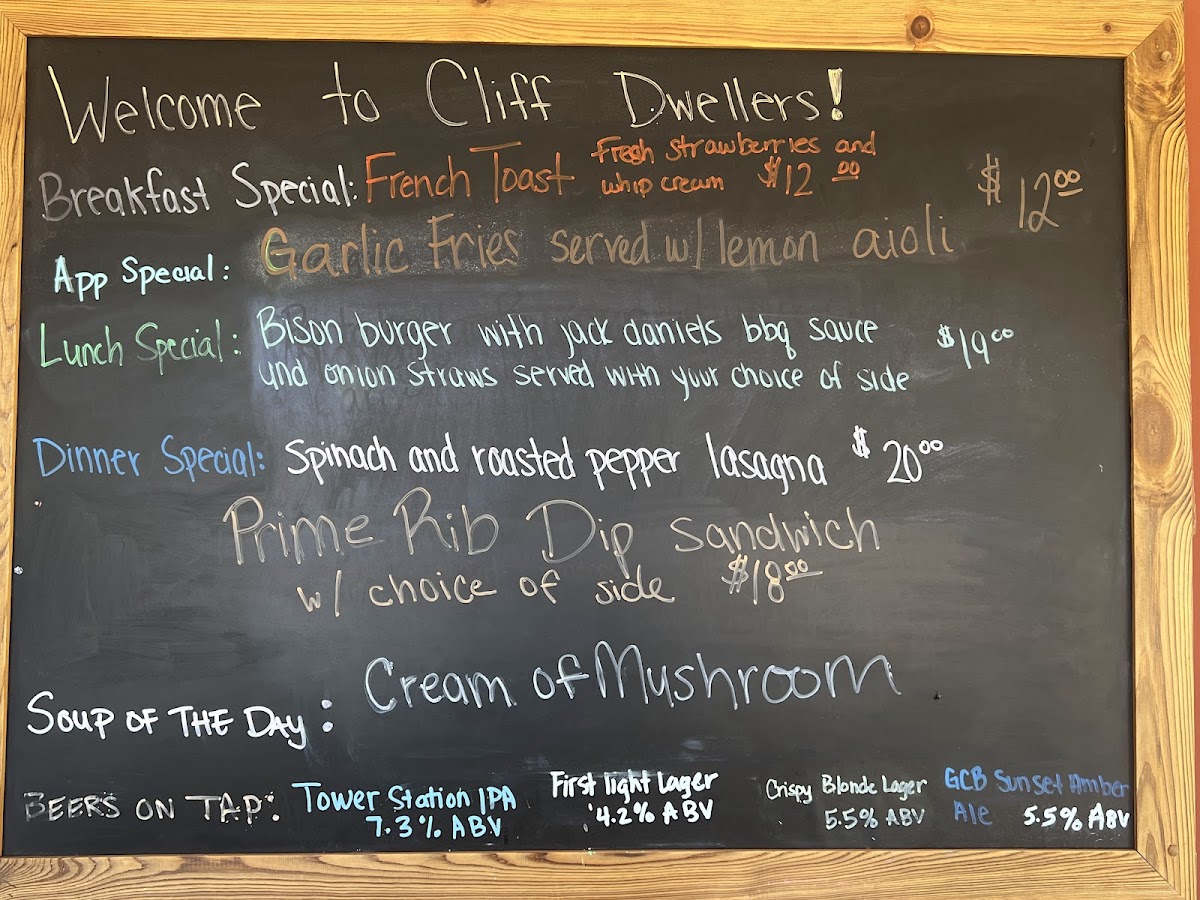 Welcome to Cliff Dwellers!
Breakfast Special: French Toast Fresh strawberries and
whip cream $12 00
App Special: Garlic Fries served w/ lemon aioli $12 00
Lunch Special: Bison burger with jack daniels bbq sauce $19 00
and onion straws served with your choice of side
Dinner Special: Spinach and roasted pepper lasagna $20 00
Prime Rib Dip Sandwich
w/ choice of side $18 00
Soup of the Day: Cream of Mushroom
BEERS ON TAP: Tower Station IPA
7.3% ABV
First light Lager
4.2% ABV
Crispy Blonde Lager
5.5% ABV
GCB Sunset Amber
Ale 5.5% ABV